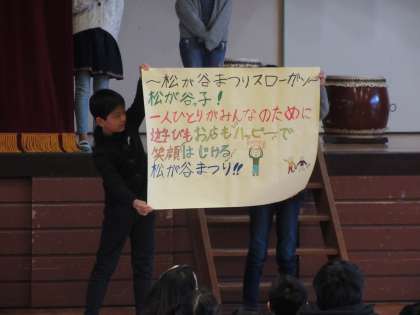 ～松が谷まつりスローガン～
松が谷っ子！
一人ひとりがみんなのために
遊びもお店もハッピーで
笑顔はじける
松が谷まつり!!